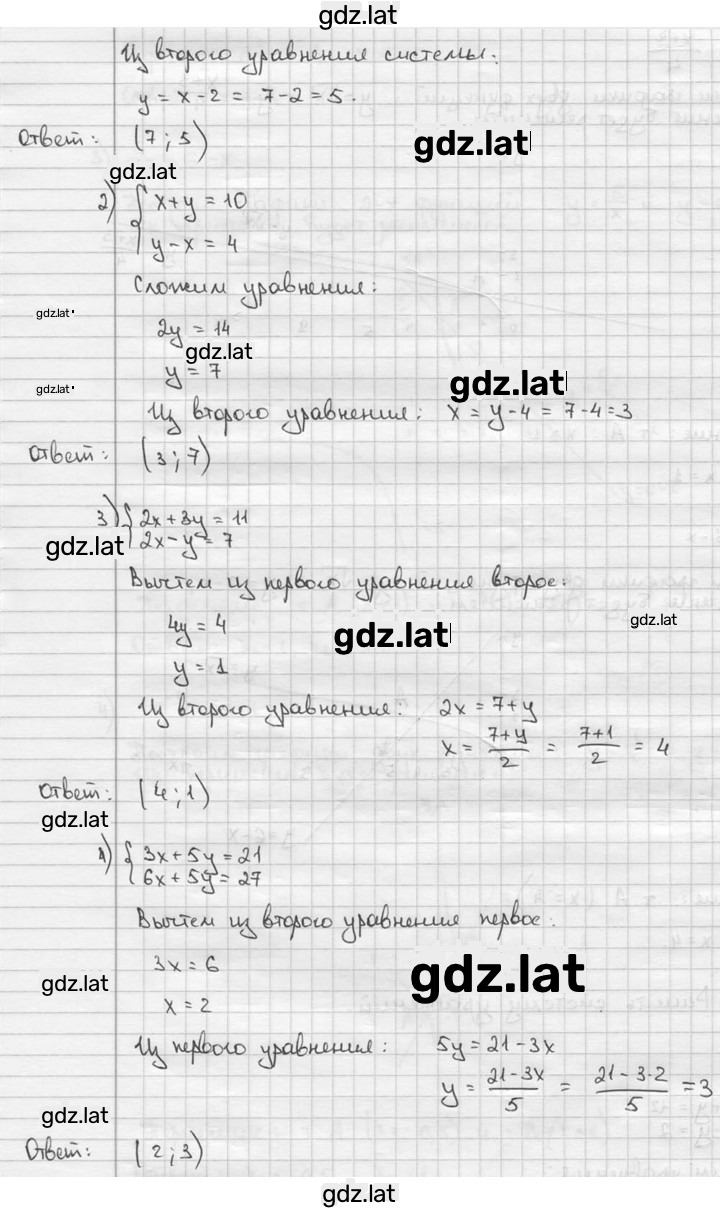 gdz.lat
Из второго уравнения системы:
y = x-2 = 7-2 = 5.
Ответ: (7; 5)
gdz.lat
gdz.lat
2) { x+y = 10
y-x = 4
Сложим уравнения:
gdz.lat
2y = 14
gdz.lat
y = 7
gdz.lat
gdz.lat
Из второго уравнения: x = y-4 = 7-4=3
Ответ: (3; 7)
3) { 2x+3y = 11
2x-y = 7
gdz.lat
Вычтем из первого уравнения второе:
4y = 4
gdz.lat
gdz.lat
y = 1
Из второго уравнения: 2x = 7+y
x = (7+y)/2 = (7+1)/2 = 4
Ответ: (4; 1)
gdz.lat
4) { 3x+5y = 21
6x+5y = 27
Вычтем из второго уравнения первое:
3x = 6
gdz.lat
gdz.lat
x = 2
Из первого уравнения: 5y = 21-3x
y = (21-3x)/5 = (21-3·2)/5 = 3
gdz.lat
Ответ: (2; 3)
gdz.lat